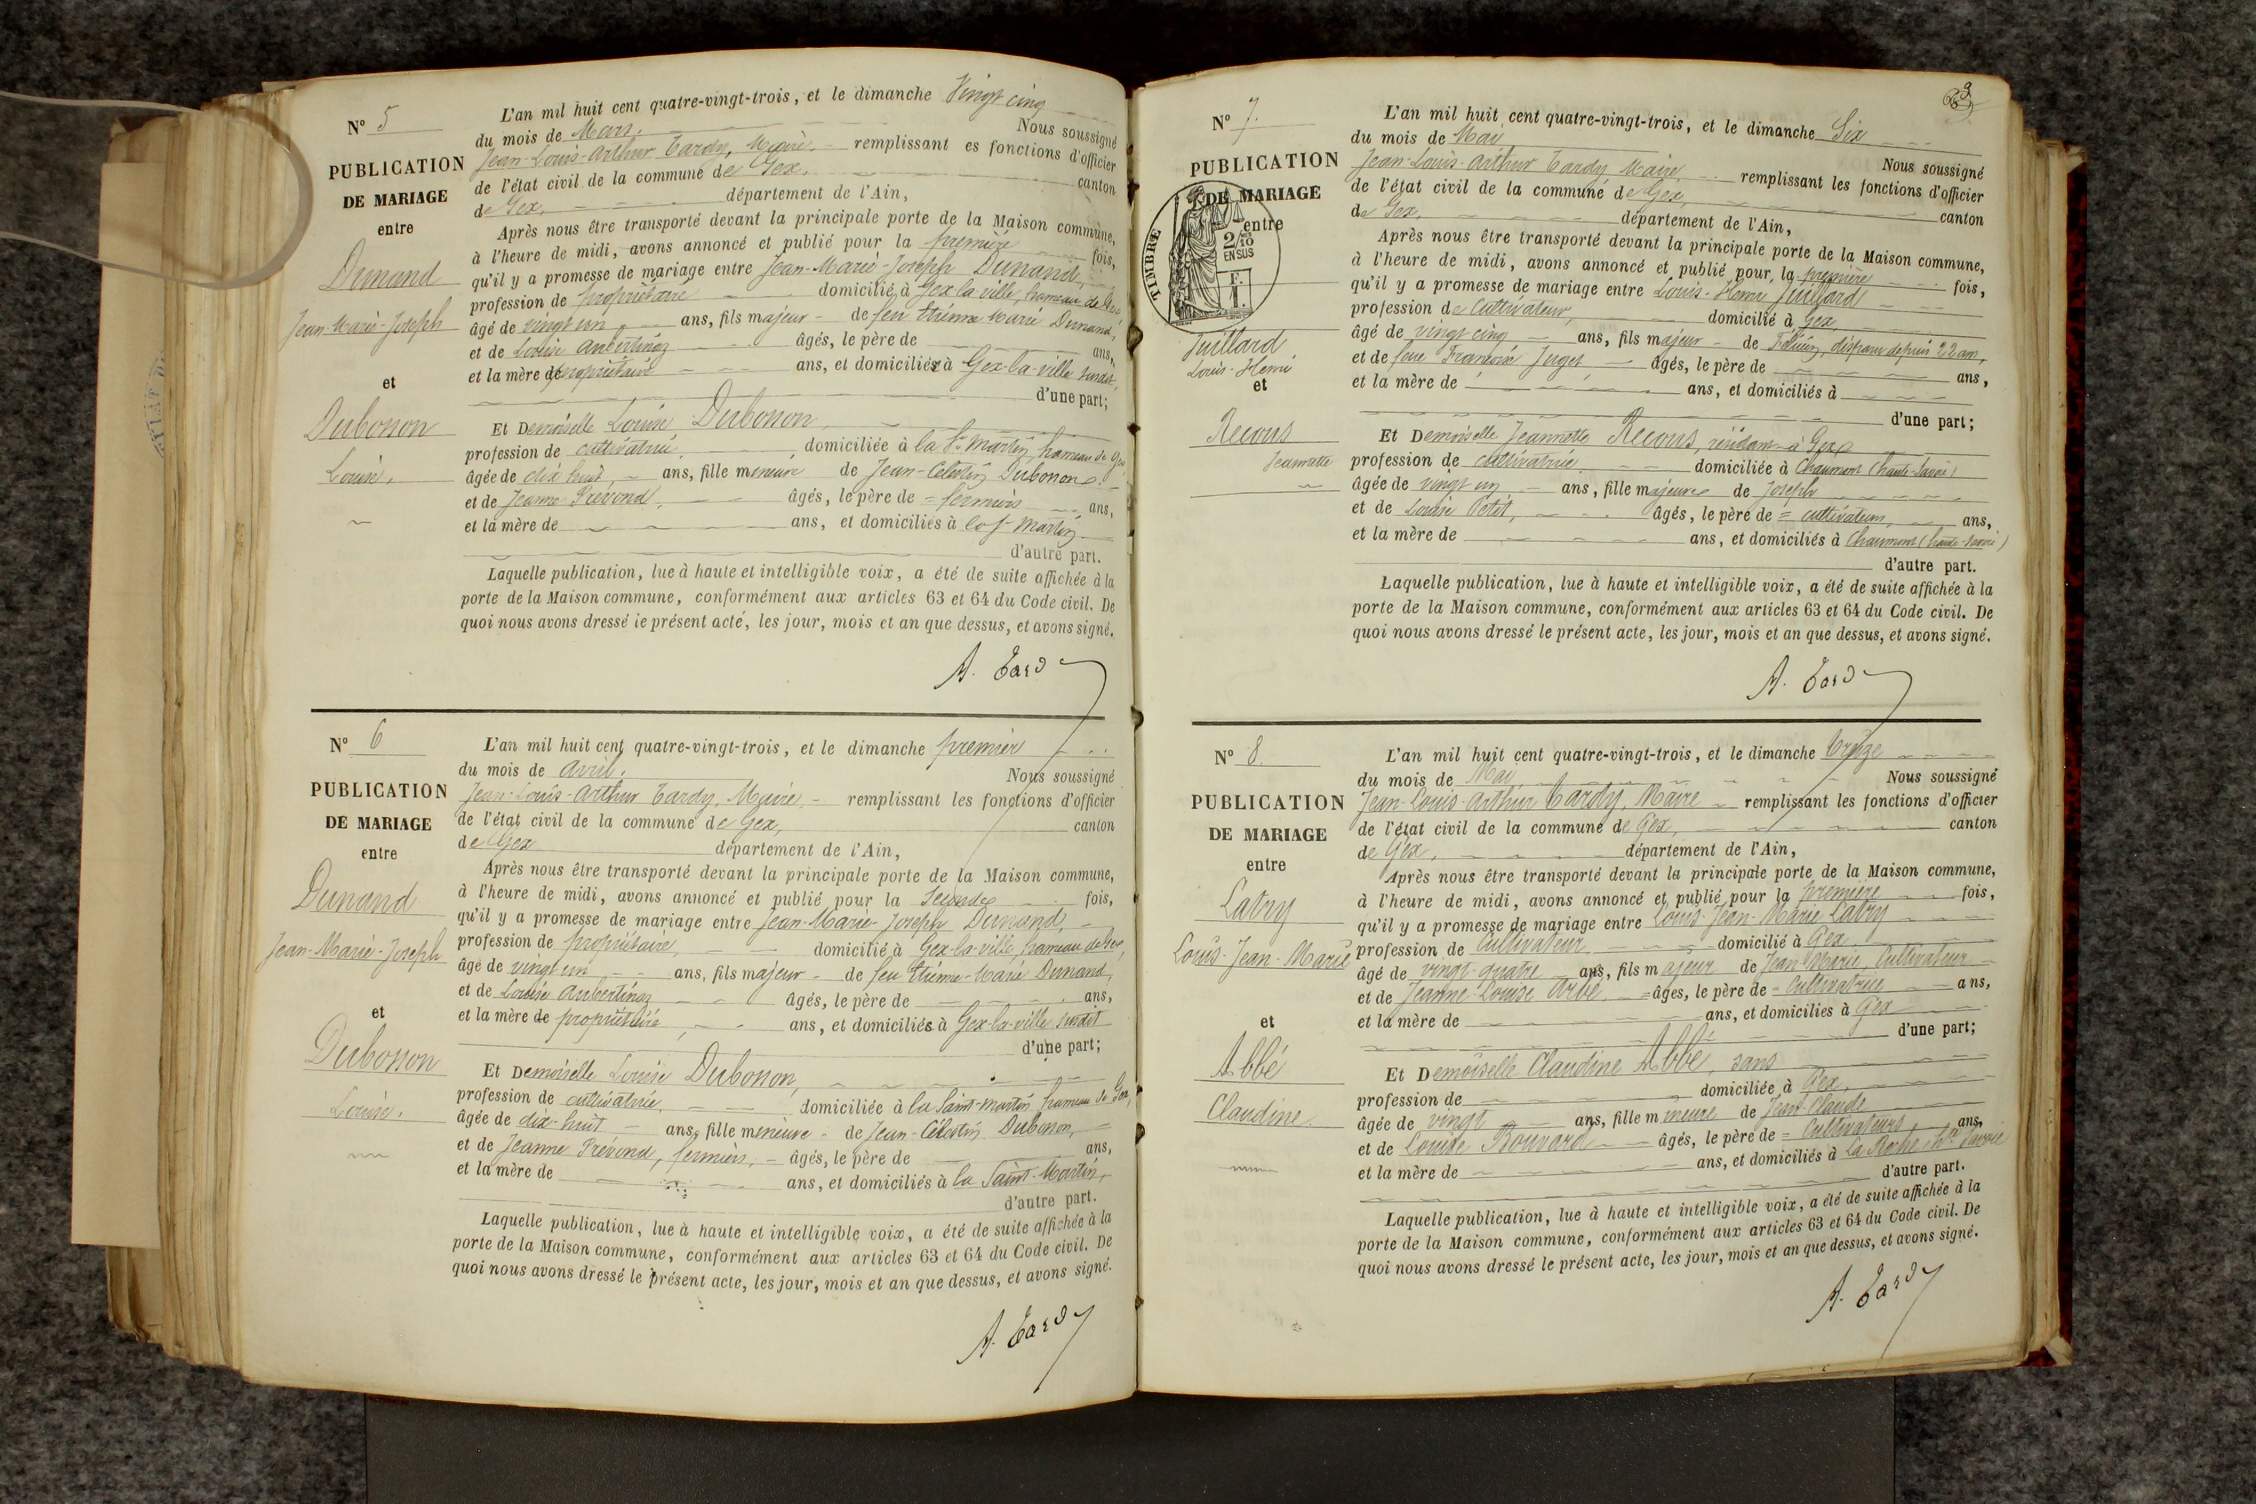 N° 5
PUBLICATION
DE MARIAGE
entre
Dunand
Jean-Marie-Joseph
et
Dubosson
Louise.
L'an mil huit cent quatre-vingt-trois, et le dimanche Vingt cinq
du mois de Mars. Nous soussigné
Jean-Louis-Arthur Tardy, Maire, remplissant es fonctions d'officier
de l'état civil de la commune de Gex, canton
de Gex, département de l'Ain,
Après nous être transporté devant la principale porte de la Maison commune,
à l'heure de midi, avons annoncé et publié pour la première fois,
qu'il y a promesse de mariage entre Jean-Marie-Joseph Dunand,
profession de propriétaire domicilié à Gex la ville, hameau de Gex
âgé de vingt un ans, fils majeur de feu Etienne Marie Dunand,
et de Louise Aubertinaz âgés, le père de ans,
et la mère de propriétaire ans, et domiciliés à Gex-la-ville susdit,
d'une part;
Et Demoiselle Louise Dubosson,
profession de cultivatrice, domiciliée à la St Martin, hameau de Gex
âgée de dix huit, ans, fille mineure de Jean-Célestin Dubosson
et de Jeanne Prévond, âgés, le père de = fermiers ans,
et la mère de ans, et domiciliés à la St Martin
d'autre part.
Laquelle publication, lue à haute et intelligible voix, a été de suite affichée à la
porte de la Maison commune, conformément aux articles 63 et 64 du Code civil. De
quoi nous avons dressé le présent acte, les jour, mois et an que dessus, et avons signé.
A. Tardy
N° 6
PUBLICATION
DE MARIAGE
entre
Dunand
Jean-Marie-Joseph
et
Dubosson
Louise.
L'an mil huit cent quatre-vingt-trois, et le dimanche premier
du mois de Avril. Nous soussigné
Jean-Louis-Arthur Tardy, Maire, remplissant les fonctions d'officier
de l'état civil de la commune de Gex, canton
de Gex département de l'Ain,
Après nous être transporté devant la principale porte de la Maison commune,
à l'heure de midi, avons annoncé et publié pour la Seconde fois,
qu'il y a promesse de mariage entre Jean-Marie-Joseph Dunand,
profession de propriétaire, domicilié à Gex-la-ville, hameau de Gex,
âgé de vingt un ans, fils majeur de feu Etienne Marie Dunand,
et de Louise Aubertinaz âgés, le père de ans,
et la mère de propriétaire, ans, et domiciliés à Gex-la-ville susdit
d'une part;
Et Demoiselle Louise Dubosson,
profession de cultivatrice, domiciliée à la Saint-Martin hameau de Gex,
âgée de dix-huit ans, fille mineure de Jean-Célestin Dubosson,
et de Jeanne Prévond, fermiers, âgés, le père de ans,
et la mère de ans, et domiciliés à la Saint-Martin,
d'autre part.
Laquelle publication, lue à haute et intelligible voix, a été de suite affichée à la
porte de la Maison commune, conformément aux articles 63 et 64 du Code civil. De
quoi nous avons dressé le présent acte, les jour, mois et an que dessus, et avons signé.
A. Tardy
N° 7.
PUBLICATION
DE MARIAGE
entre
TIMBRE
2/10
EN SUS
Juillard
Louis-Henri
et
Recous
Jeannette
L'an mil huit cent quatre-vingt-trois, et le dimanche Six
du mois de Mai Nous soussigné
Jean-Louis-Arthur Tardy Maire remplissant les fonctions d'officier
de l'état civil de la commune de Gex, canton
de Gex, département de l'Ain,
Après nous être transporté devant la principale porte de la Maison commune,
à l'heure de midi, avons annoncé et publié pour la première fois,
qu'il y a promesse de mariage entre Louis-Henri Juillard
profession de Cultivateur, domicilié à Gex,
âgé de vingt cinq ans, fils majeur de disparu depuis 22 ans,
et de feue Françoise Juget, âgés, le père de ans,
et la mère de ans, et domiciliés à
d'une part;
Et Demoiselle Jeannette Recous, résidant à Gex
profession de cultivatrice domiciliée à Chaumont (haute-Savoie)
âgée de vingt un ans, fille majeure de Joseph
et de Louise Petit, âgés, le père de = cultivateurs, ans,
et la mère de ans, et domiciliés à Chaumont (haute-Savoie)
d'autre part.
Laquelle publication, lue à haute et intelligible voix, a été de suite affichée à la
porte de la Maison commune, conformément aux articles 63 et 64 du Code civil. De
quoi nous avons dressé le présent acte, les jour, mois et an que dessus, et avons signé.
A. Tardy
N° 8.
PUBLICATION
DE MARIAGE
entre
Latry
Louis-Jean-Marie
et
Abbé
Claudine.
L'an mil huit cent quatre-vingt-trois, et le dimanche treize
du mois de Mai Nous soussigné
Jean-Louis-Arthur Tardy, Maire remplissant les fonctions d'officier
de l'état civil de la commune de Gex, canton
de Gex, département de l'Ain,
Après nous être transporté devant la principale porte de la Maison commune,
à l'heure de midi, avons annoncé et publié pour la première fois,
qu'il y a promesse de mariage entre Louis-Jean-Marie Latry
profession de Cultivateur domicilié à Gex
âgé de vingt-quatre ans, fils majeur de Jean Marie, Cultivateur
et de Jeanne-Louise âgés, le père de = Cultivatrice ans,
et la mère de ans, et domiciliés à Gex
d'une part;
Et Demoiselle Claudine Abbé, sans
profession de domiciliée à Gex,
âgée de vingt ans, fille mineure de Jean-Claude
et de Louise Bouvard âgés, le père de = Cultivateurs ans,
et la mère de ans, et domiciliés à La Roche Hte Savoie
d'autre part.
Laquelle publication, lue à haute et intelligible voix, a été de suite affichée à la
porte de la Maison commune, conformément aux articles 63 et 64 du Code civil. De
quoi nous avons dressé le présent acte, les jour, mois et an que dessus, et avons signé.
A. Tardy